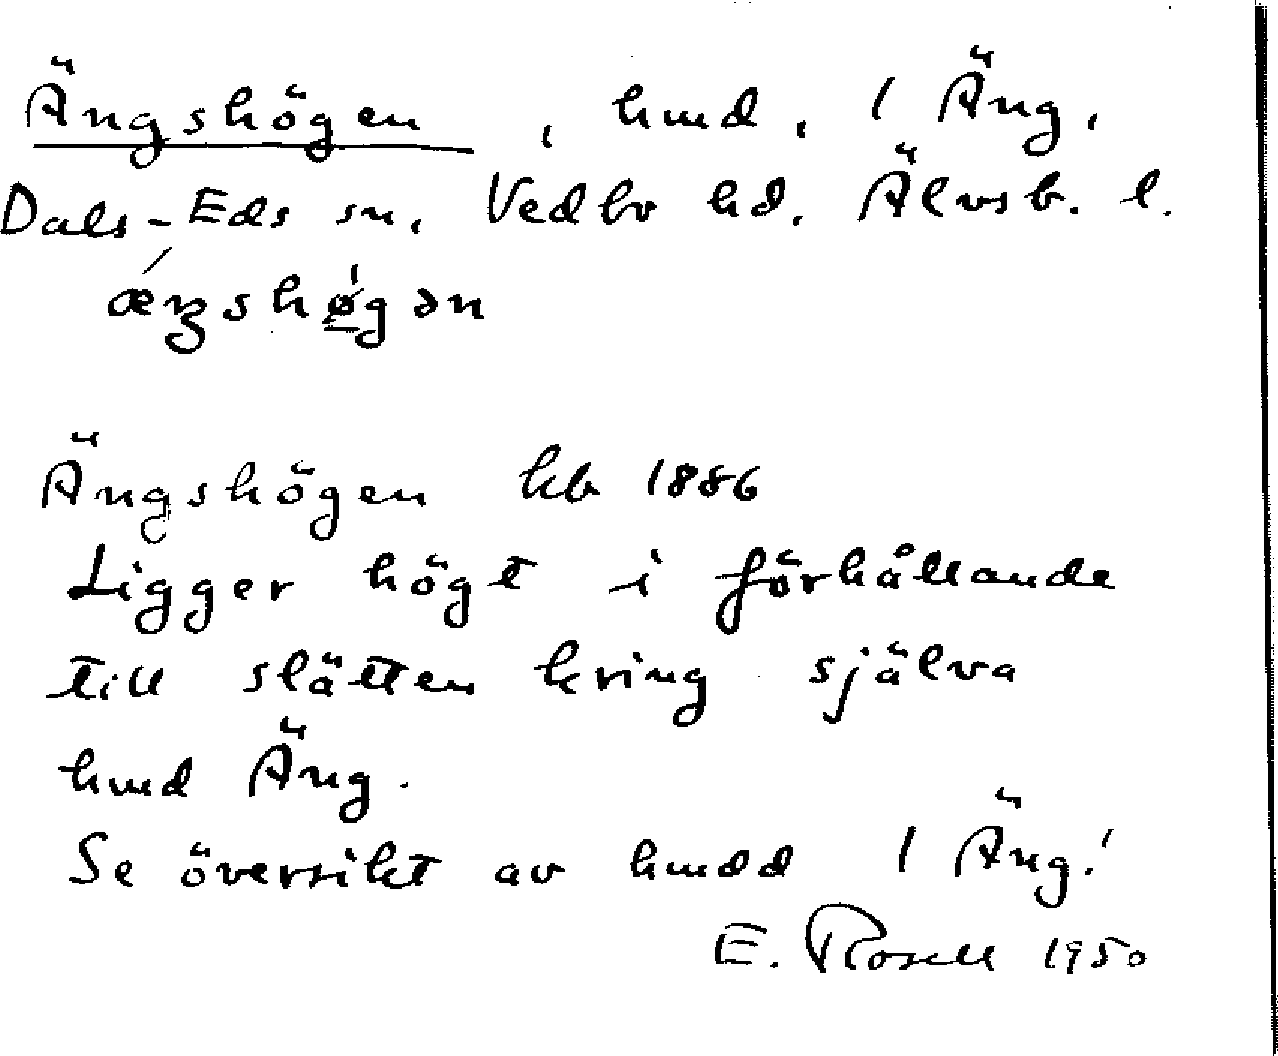 Ängshögen, hmd, 1 Äng,
Dals-Eds sn, Vedbo hd. Älvsb. l.
ǽŋshø̀gən
Ängshögen kb 1886
Ligger högt i förhållande
till slätten kring själva
hmd Äng.
Se översikt av hmdd 1 Äng!
E. Rosell 1950